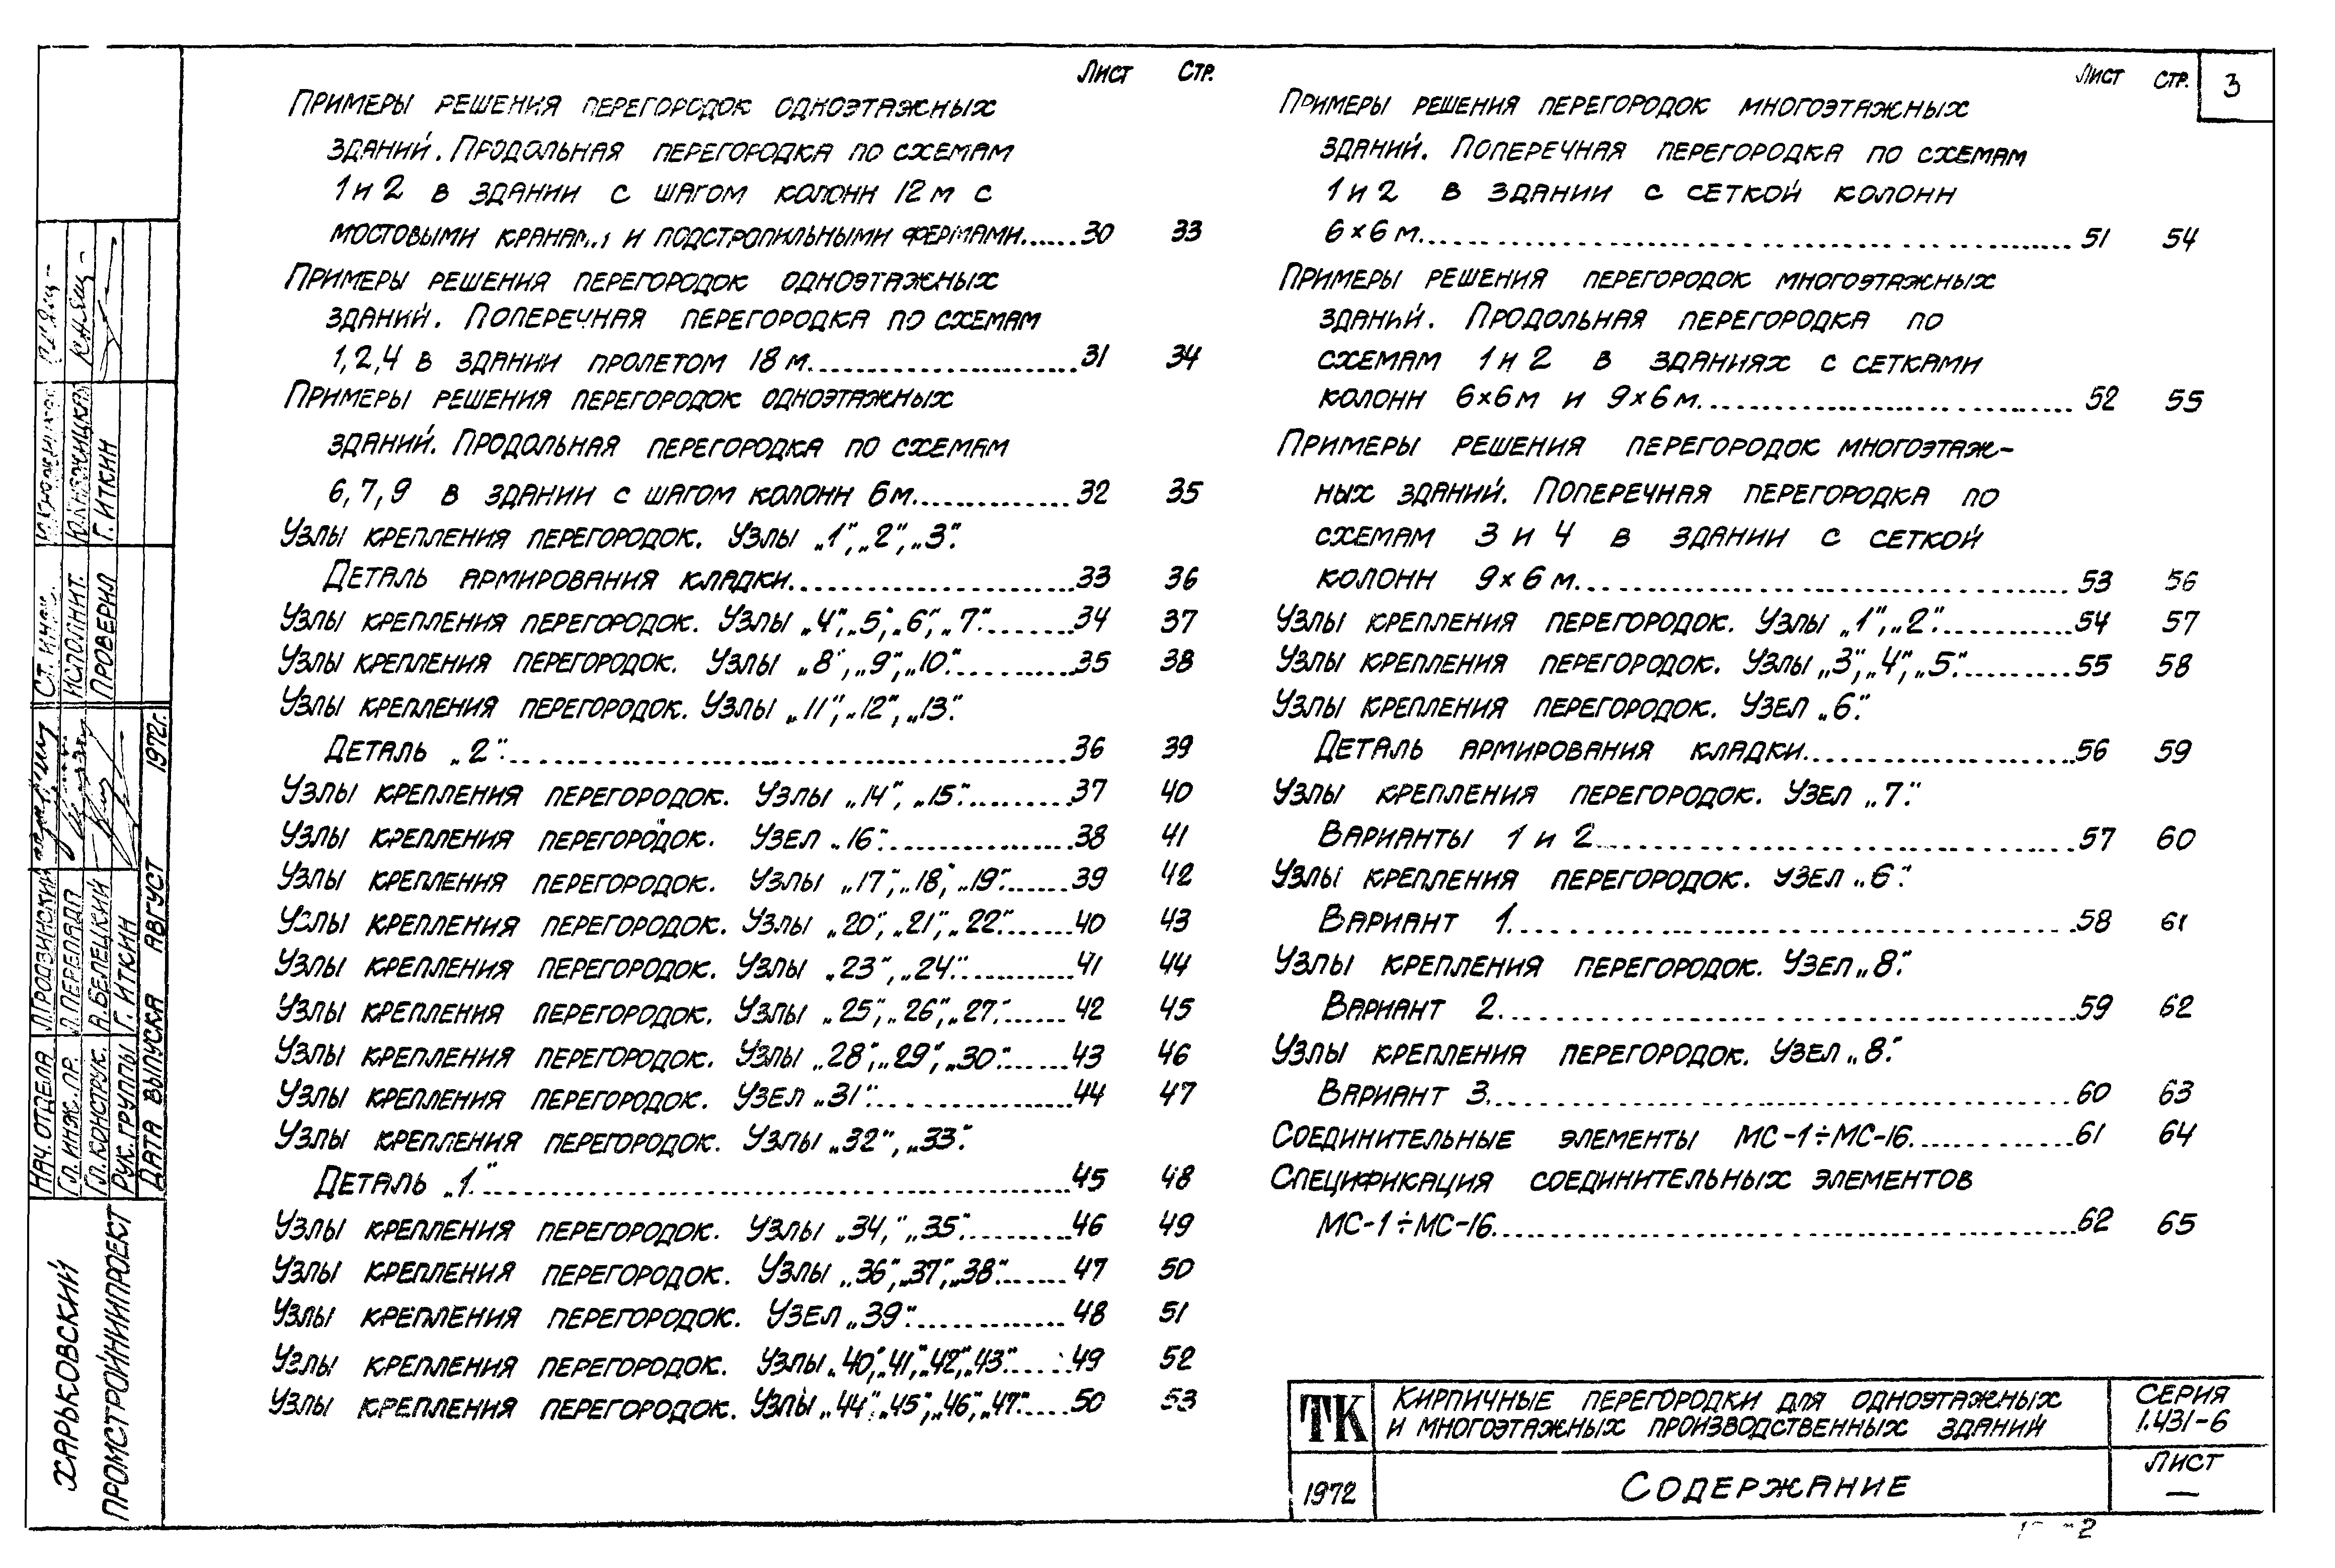 Лист Стр.
Примеры решения перегородок одноэтажных
зданий. Продольная перегородка по схемам
1 и 2 в здании с шагом колонн 12 м с
мостовыми кранами и подстропильными фермами...... 30 33
Примеры решения перегородок одноэтажных
зданий. Поперечная перегородка по схемам
1, 2, 4 в здании пролетом 18 м. 31 34
Примеры решения перегородок одноэтажных
зданий. Продольная перегородка по схемам
6, 7, 9 в здании с шагом колонн 6 м. 32 35
Узлы крепления перегородок. Узлы „1”, „2”, „3”.
Деталь армирования кладки. 33 36
Узлы крепления перегородок. Узлы „4”, „5”, „6”, „7”. 34 37
Узлы крепления перегородок. Узлы „8”, „9”, „10”. 35 38
Узлы крепления перегородок. Узлы „11”, „12”, „13”.
Деталь „2”. 36 39
Узлы крепления перегородок. Узлы „14”, „15”. 37 40
Узлы крепления перегородок. Узел „16”. 38 41
Узлы крепления перегородок. Узлы „17”, „18”, „19”. 39 42
Узлы крепления перегородок. Узлы „20”, „21”, „22”. 40 43
Узлы крепления перегородок. Узлы „23”, „24”. 41 44
Узлы крепления перегородок. Узлы „25”, „26”, „27”. 42 45
Узлы крепления перегородок. Узлы „28”, „29”, „30”. 43 46
Узлы крепления перегородок. Узел „31”. 44 47
Узлы крепления перегородок. Узлы „32”, „33”.
Деталь „1”. 45 48
Узлы крепления перегородок. Узлы „34”, „35”. 46 49
Узлы крепления перегородок. Узлы „36”, „37”, „38”. 47 50
Узлы крепления перегородок. Узел „39”. 48 51
Узлы крепления перегородок. Узлы „40”, „41”, „42”, „43”. 49 52
Узлы крепления перегородок. Узлы „44”, „45”, „46”, „47”. 50 53
Лист Стр. 3
Примеры решения перегородок многоэтажных
зданий. Поперечная перегородка по схемам
1 и 2 в здании с сеткой колонн
6×6 м. 51 54
Примеры решения перегородок многоэтажных
зданий. Продольная перегородка по
схемам 1 и 2 в зданиях с сетками
колонн 6×6 м и 9×6 м. 52 55
Примеры решения перегородок многоэтаж-
ных зданий. Поперечная перегородка по
схемам 3 и 4 в здании с сеткой
колонн 9×6 м. 53 56
Узлы крепления перегородок. Узлы „1”, „2”. 54 57
Узлы крепления перегородок. Узлы „3”, „4”, „5”. 55 58
Узлы крепления перегородок. Узел „6”.
Деталь армирования кладки. 56 59
Узлы крепления перегородок. Узел „7”.
Варианты 1 и 2 57 60
Узлы крепления перегородок. Узел „6”.
Вариант 1. 58 61
Узлы крепления перегородок. Узел „8”.
Вариант 2. 59 62
Узлы крепления перегородок. Узел „8”.
Вариант 3. 60 63
Соединительные элементы МС-1÷МС-16. 61 64
Спецификация соединительных элементов
МС-1÷МС-16. 62 65
ТК Кирпичные перегородки для одноэтажных
и многоэтажных производственных зданий
Серия
1.431-6
1972 Содержание
Лист
—
Харьковский
Промстройниипроект
Нач. отдела Л. Родзинский
Гл. инж. пр. Л. Перепада
Гл. конструк. А. Белецкий
Рук. группы Г. Иткин
Дата выпуска август 1972г.
Ст. инж.
Исполнит.
Проверил Г. Иткин